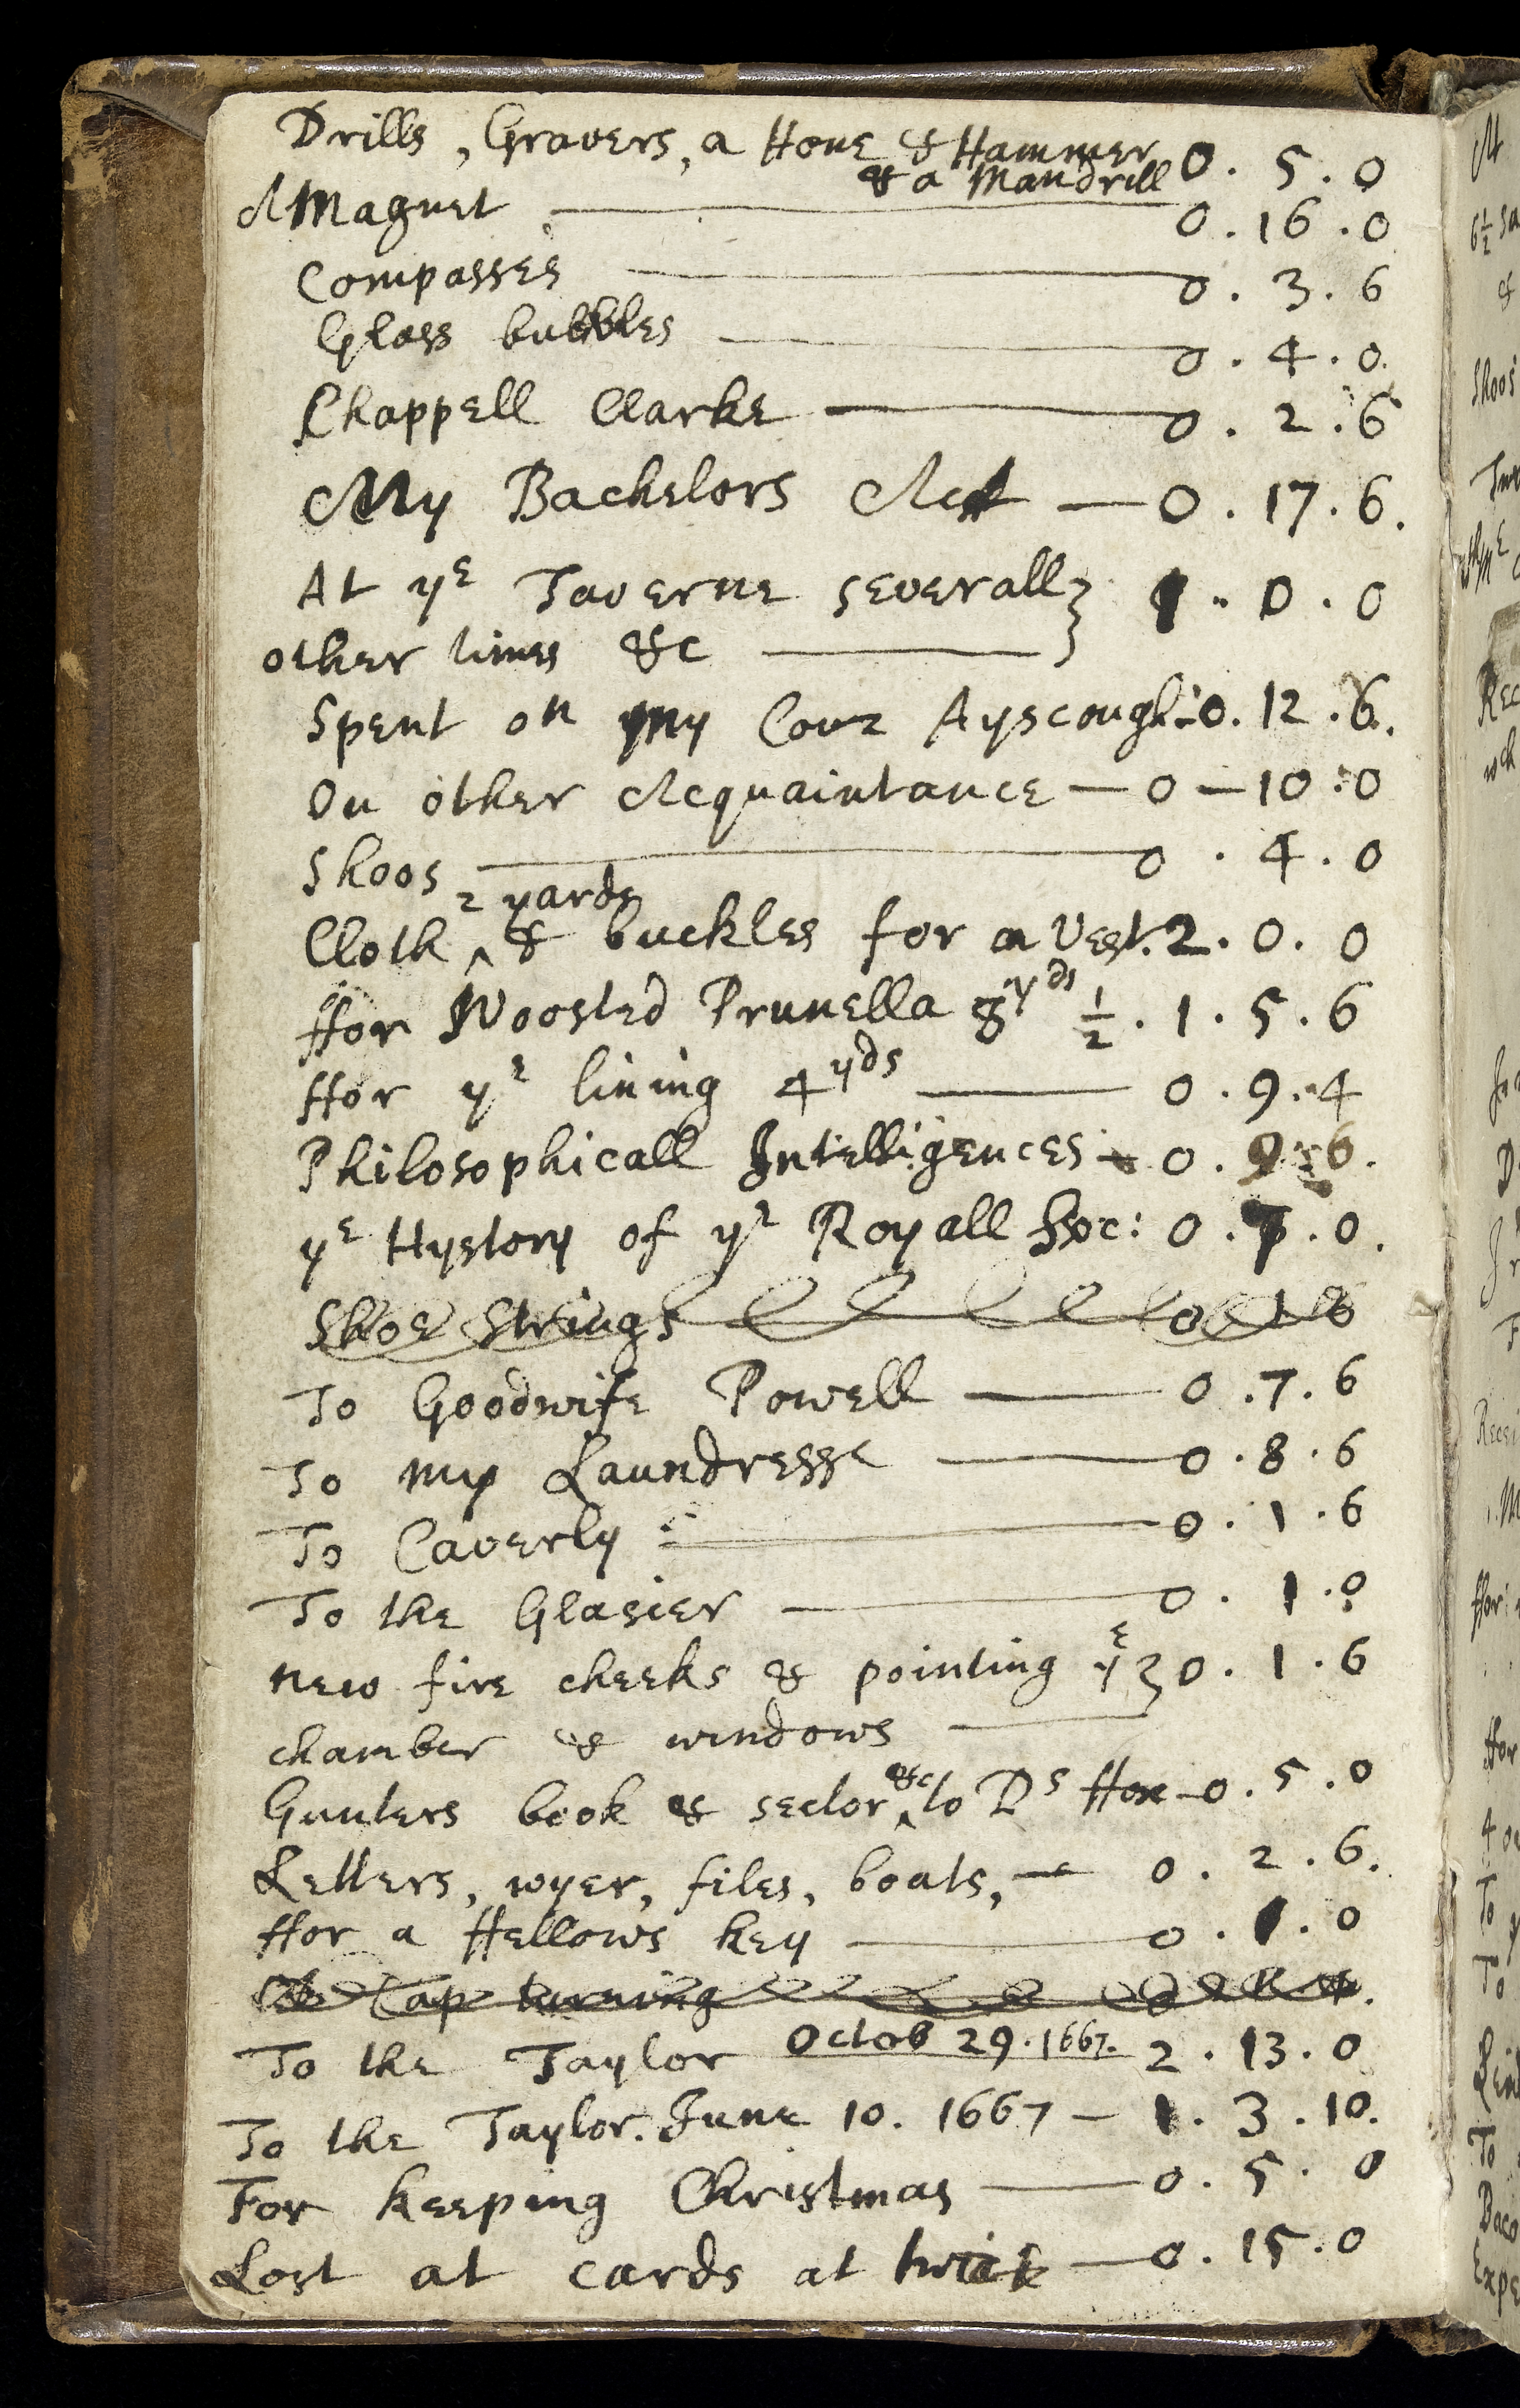 Drills, Gravers, a Hone & Hammer 0. 5. 0
& a Mandrill
A Magnet 0. 16. 0
Compasses 0. 3. 6
Glass bubbles 0. 4. 0.
Chappell Clarke 0. 2. 6
My Bachelors Act — 0. 17. 6.
At yᵉ Taverne severall } 1. 0. 0
other times &c
Spent on my Cous Ayscough: 0. 12. 6.
On other Acquaintance — 0 — 10. 0
Shoos 0. 4. 0
2 yards
Cloth ^ & buckles for a Vest. 2. 0. 0
ffor Woosted Prunella 8 yᵈˢ ½. 1. 5. 6
ffor yᵉ lining 4 yᵈˢ — 0. 9. 4
Philosophicall Intelligences 0. 9. 6.
yᵉ Hystory of yᵉ Royall Soc: 0. 7. 0.
Shoe Strings 0 1 6
To Goodwife Powell — 0. 7. 6
To my Laundresse — 0. 8. 6
To Caverly 0. 1. 6
To the Glasier — 0. 1. 0
new fire cheeks & pointing yᵉ } 0. 1. 6
chamber & windows
Gunters book & sector ^ &c to Dˢ ffox — 0. 5. 0
Letters, wyer, files, boats, — 0. 2. 6.
ffor a ffellows key — 0. 1. 0
Cap turning
To the Taylor Octob 29. 1667. 2. 13. 0
To the Taylor. June 10. 1667 — 1. 3. 10.
For keeping Christmas — 0. 5. 0
Lost at cards at twice — 0. 15. 0